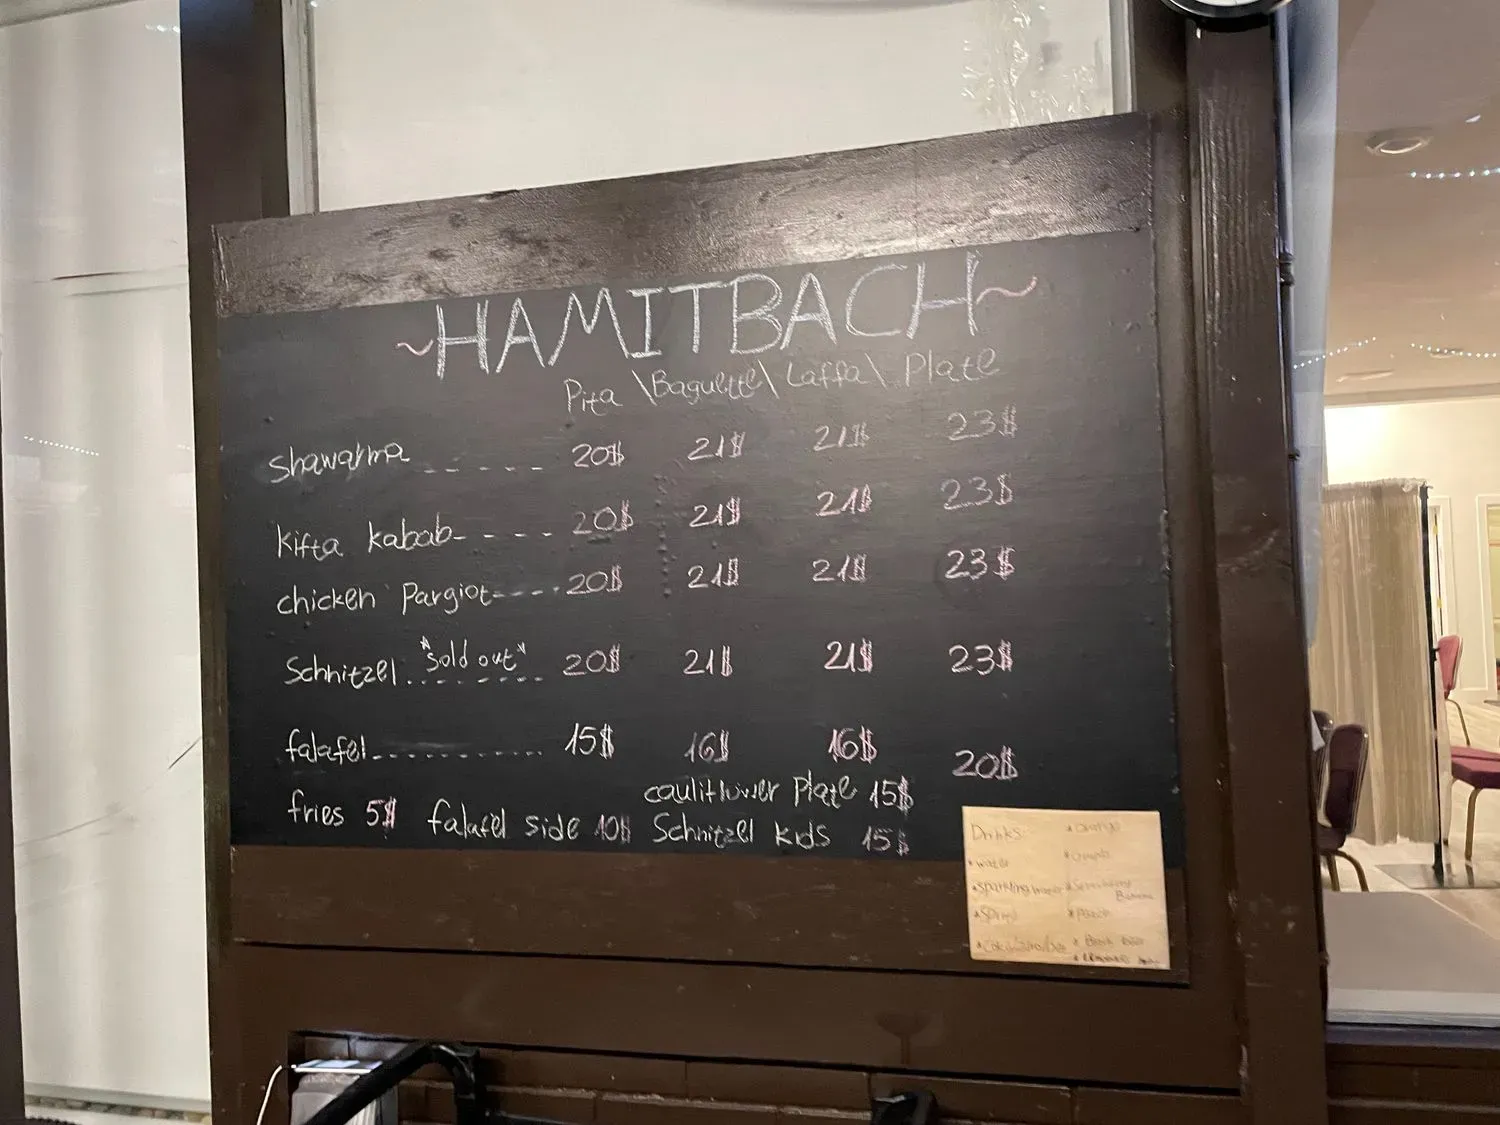 ~HAMITBACH~
Pita \Baguette\ Laffa\ Plate
shawarma ...... 20$ 21$ 21$ 23$
kifta kabab- - - - - 20$ 21$ 21$ 23$
chicken Pargiot- - - - - 20$ 21$ 21$ 23$
Schnitzel *sold out* ........ 20$ 21$ 21$ 23$
falafel............ 15$ 16$ 16$ 20$
cauliflower Plate 15$
fries 5$ falafel side 10$ Schnitzel kids 15$
Drinks:
*water
*sparkling water
*Sprite
*orange
*Grape
*Strawberry Banana
*Peach